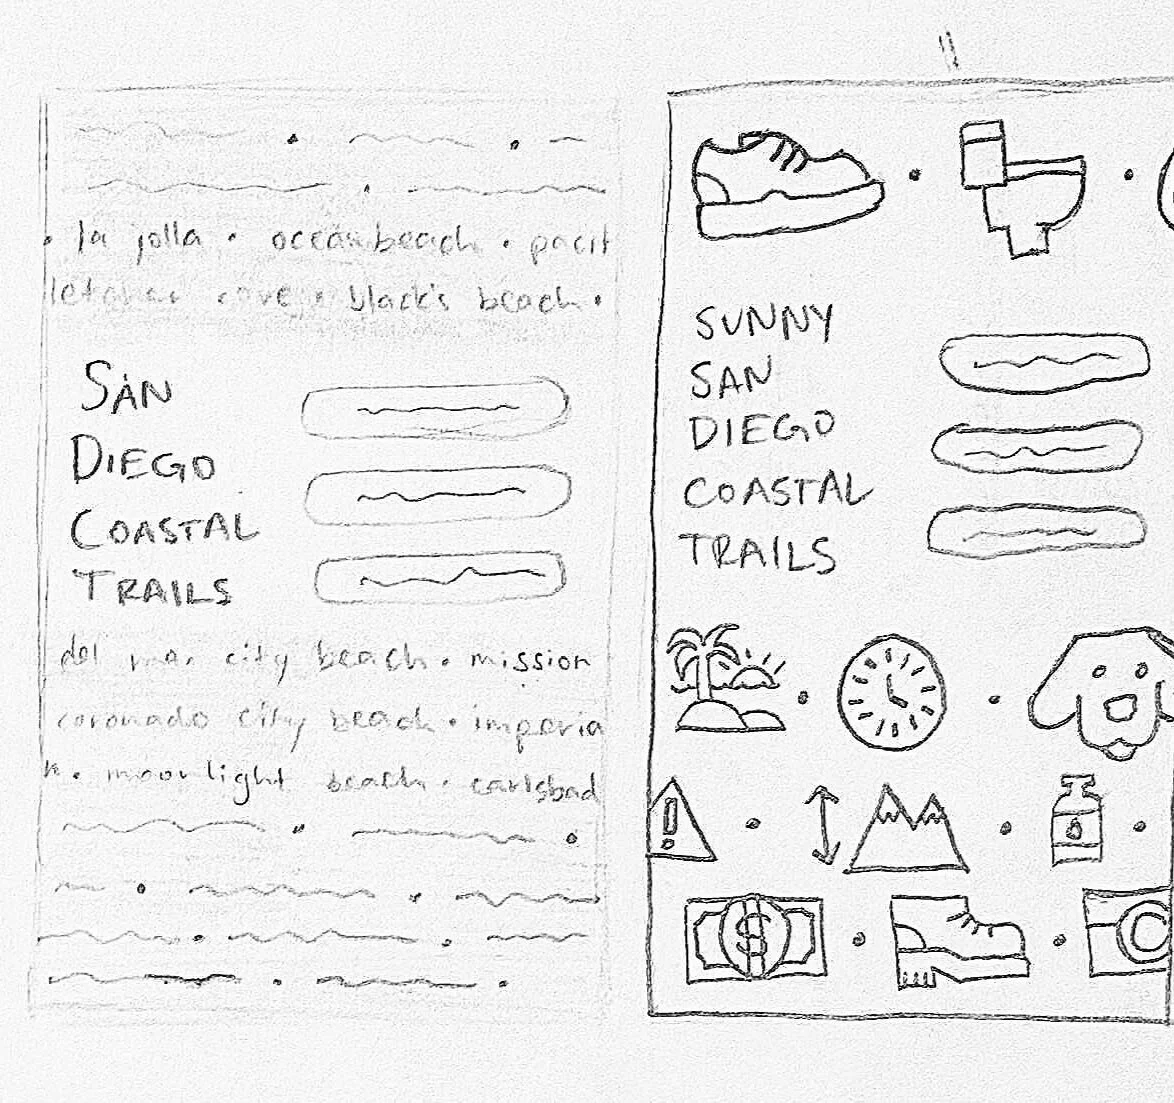 • la jolla • ocean beach • pacif
letcher cove • black's beach •
SAN
DIEGO
COASTAL
TRAILS
del mar city beach • mission
coronado city beach • imperia
h • moonlight beach • carlsbad
SUNNY
SAN
DIEGO
COASTAL
TRAILS
!
$
C